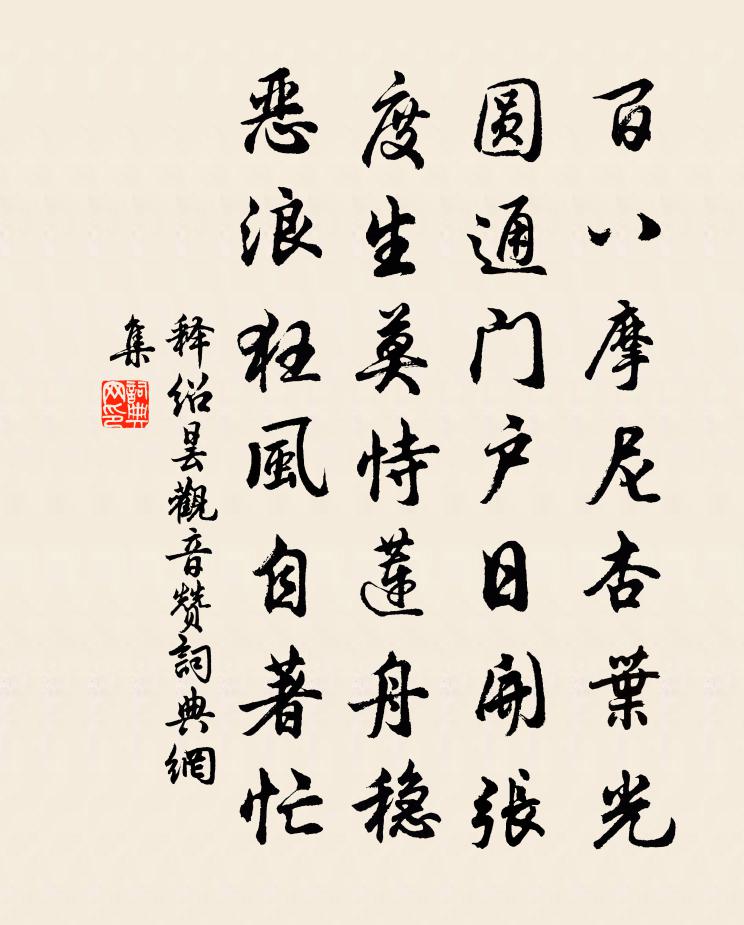 百八摩尼杏葉光
圆通门户日開張
度生莫恃蓮舟稳
恶浪狂風自著忙
释绍昙觀音赞詞典網
集
詞典
网印